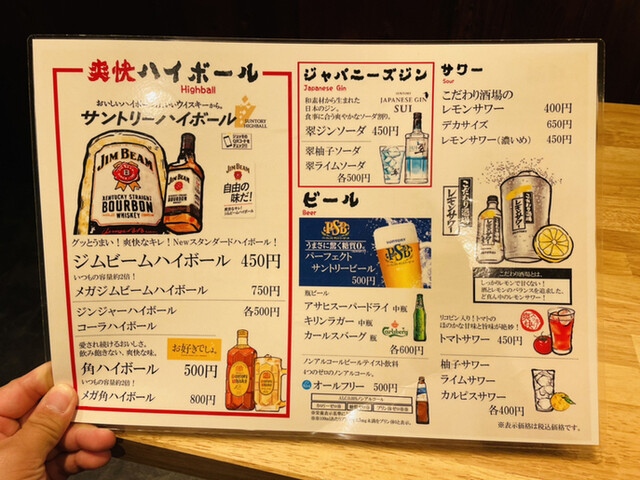 爽快ハイボール
Highball
サントリーハイボール
SUNTORY
HIGHBALL
JIM BEAM
KENTUCKY STRAIGHT
BOURBON
WHISKEY
JIM BEAM
自由の
味だ!
グッとうまい!爽快なキレ!Newスタンダードハイボール!
ジムビームハイボール 450円
いつもの容量約2倍!
メガジムビームハイボール 750円
ジンジャーハイボール 各500円
コーラハイボール
愛され続けるおいしさ。
飲み飽きない、爽快な味。
お好きでしょ。
角ハイボール 500円
いつもの容量約2倍!
メガ角ハイボール 800円
ジャパニーズジン
Japanese Gin
和素材から生まれた
日本のジン。
食事に合う爽やかなソーダ割り。
JAPANESE GIN
SUI
翠ジンソーダ 450円
翠柚子ソーダ
翠ライムソーダ
各500円
ビール
Beer
PSB
うまさに驚く糖質0。
パーフェクト
サントリービール
500円
瓶ビール
アサヒスーパードライ 中瓶
キリンラガー 中瓶
カールスバーグ 瓶
Carlsberg
各600円
ノンアルコールビールテイスト飲料
4つのゼロのノンアルコール。
オールフリー 500円
サワー
Sour
こだわり酒場の
レモンサワー 400円
デカサイズ 650円
レモンサワー(濃いめ) 450円
こだわり酒場の
レモンサワー
こだわり酒場とは、
しっかりレモンで甘くない!
酒とレモンのバランスを追求した、
ど真ん中のレモンサワー!
リコピン入り!トマトの
ほのかな甘味と旨味が絶妙!
トマトサワー 450円
柚子サワー
ライムサワー
カルピスサワー
各400円
※表示価格は税込価格です。